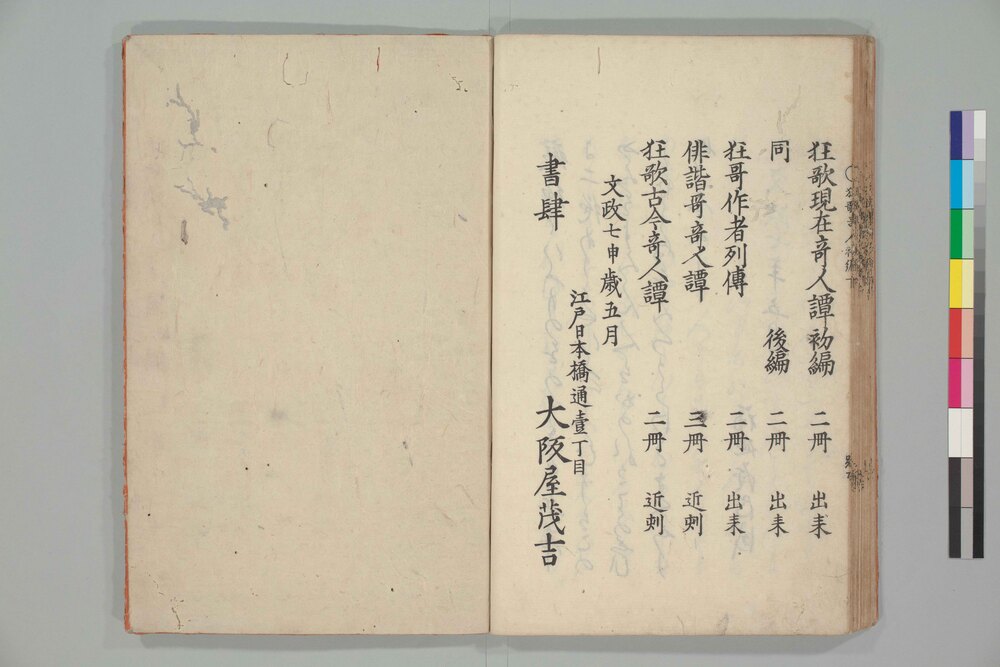 狂歌現在奇人譚 初編 二冊 出来
同 後編 二冊 出来
狂哥作者列傳 二冊 出来
俳諧哥奇人譚 三冊 近刻
狂歌古今奇人譚 二冊 近刻
文政七申歳五月
江戸日本橋通壹丁目
書肆 大阪屋茂吉